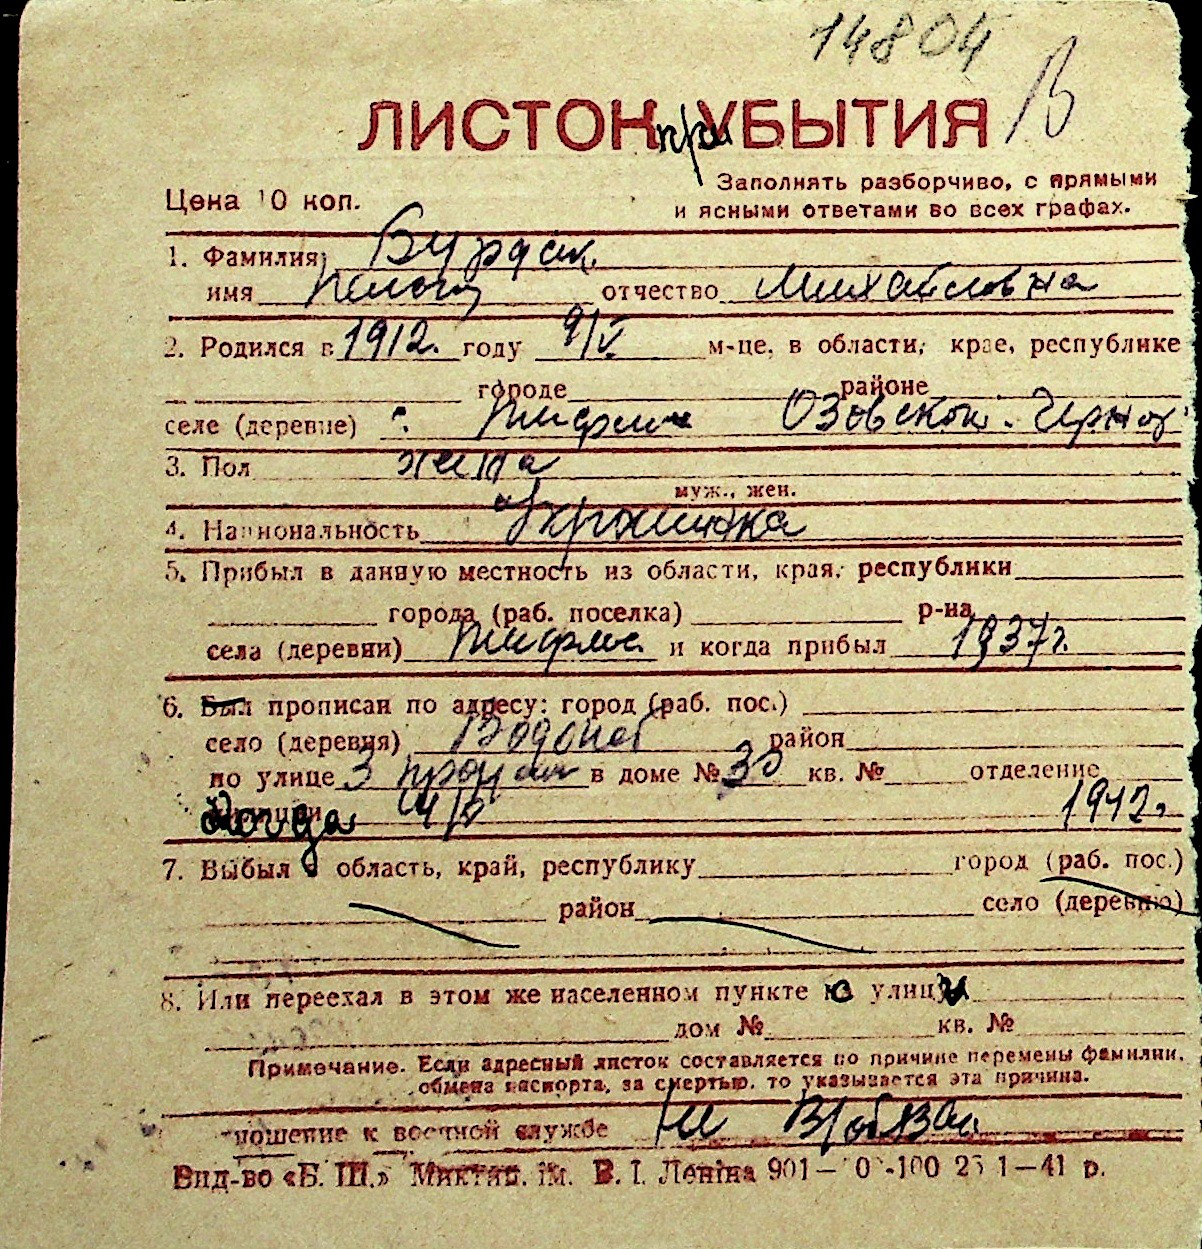 14804
В
ЛИСТОК при УБЫТИЯ
Заполнять разборчиво, с прямыми
Цена 10 коп.
и ясными ответами во всех графах.
1. Фамилия Бурдак
имя отчество Михайловна
2. Родился в 1912. году 9/V м-це, в области, крае, республике
городе районе
селе (деревне) Озовской
3. Пол жена
муж., жен.
4. Национальность Украинка
5. Прибыл в данную местность из области, края, республики
города (раб. поселка) р-на
села (деревни) и когда прибыл 1937г.
6. Был прописан по адресу: город (раб. пос.)
село (деревня) район
по улице 3 в доме № 30 кв. № отделение
когда 1942.
7. Выбыл в область, край, республику город (раб. пос.)
район село (деревню)
8. Или переехал в этом же населенном пункте с улицы
дом № кв. №
Примечание. Если адресный листок составляется по причине перемены фамилии,
обмена паспорта, за смертью, то указывается эта причина.
ношение к военной службе
Вид-во «Б. Ш.» ім. В. І. Леніна 901— 1—41 р.